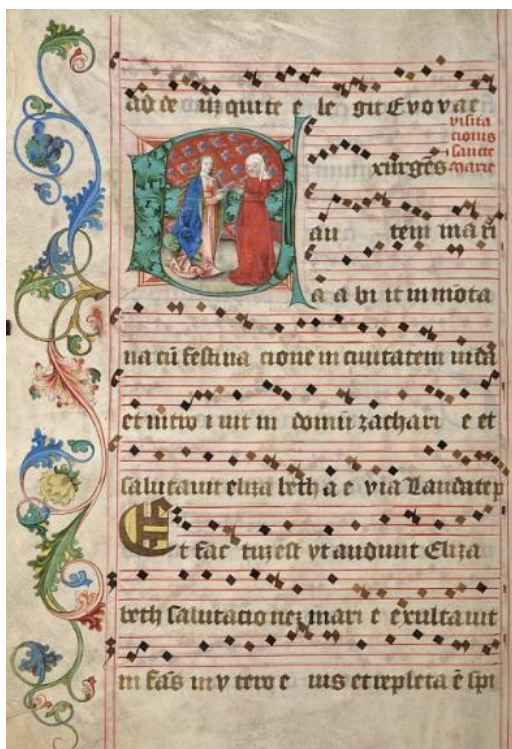 ad de uiz qui te e le git Evovae
visita
cionis
sancte
marie
Exurgēs
au tem mari
a a bi it in mōta
na cū festina cione in ciuitatem iudā
et intro i uit in domū zachari e et
salutauit eliza beth a e via Laudate p
Et fac tuz est vt audiuit Eliza
beth salutacio nez mari e exultauit
in fās in v tero e ius et repleta ē spi